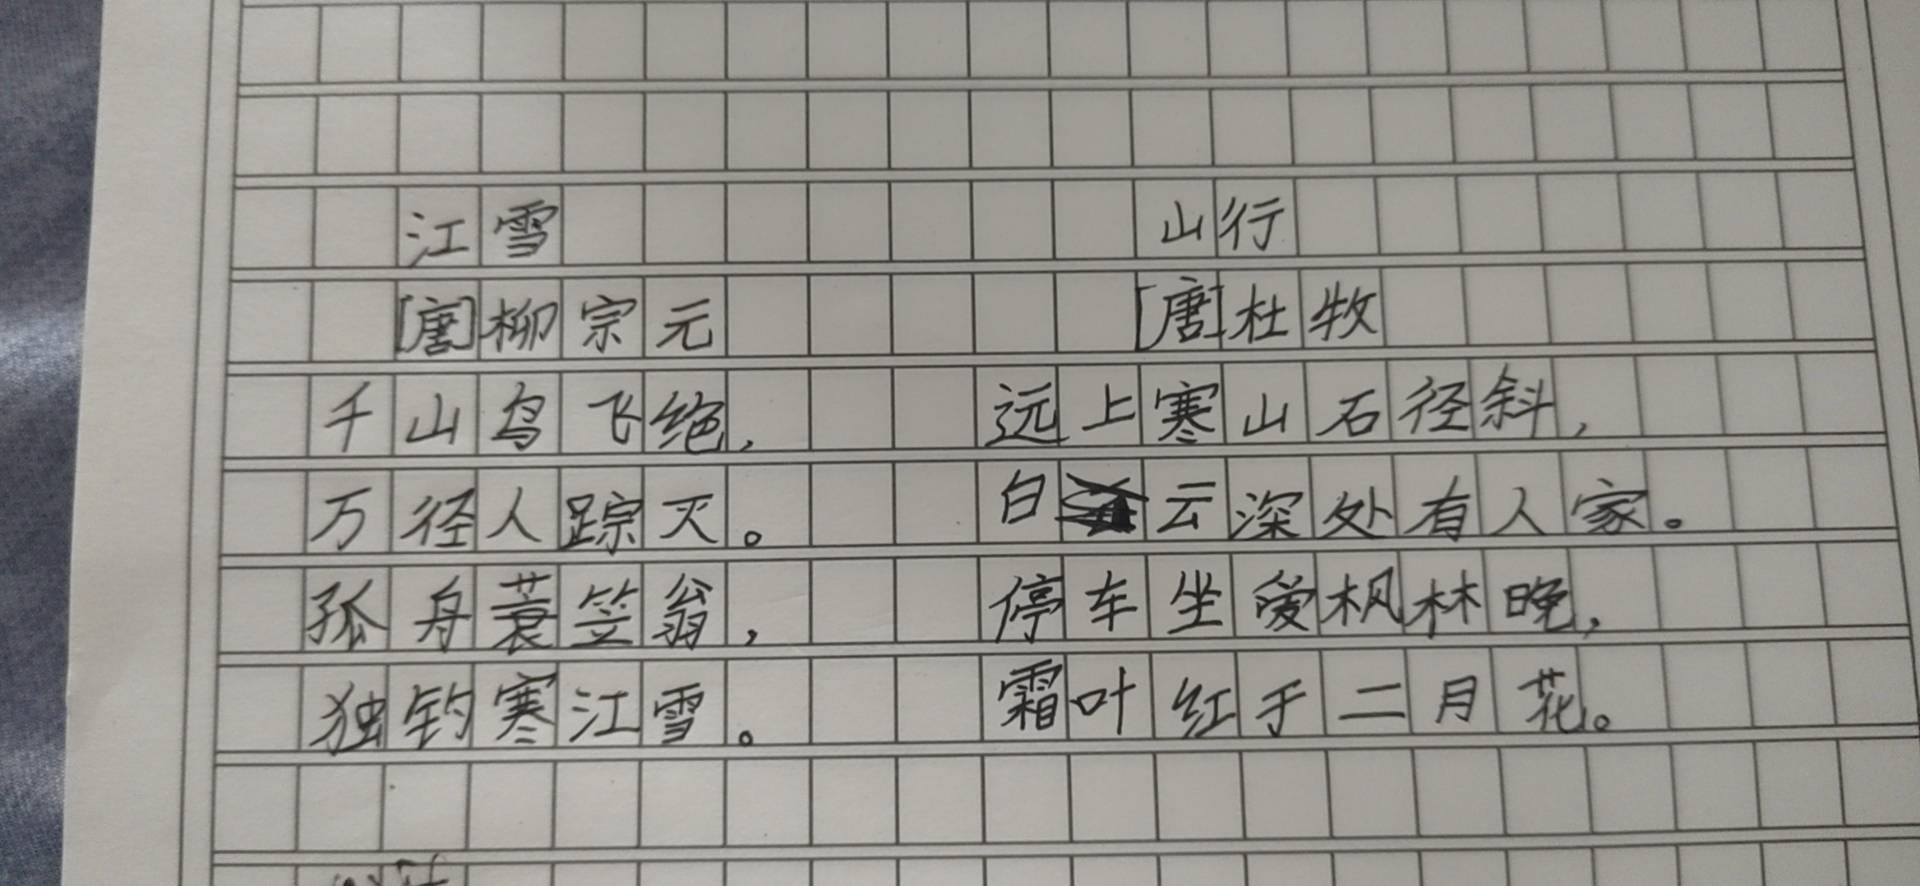 江雪
[唐]柳宗元
千山鸟飞绝，
万径人踪灭。
孤舟蓑笠翁，
独钓寒江雪。
山行
[唐]杜牧
远上寒山石径斜，
白云深处有人家。
停车坐爱枫林晚，
霜叶红于二月花。